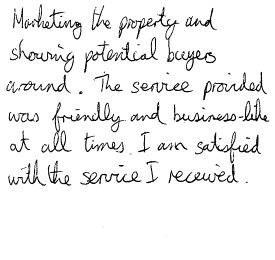 Marketing the property and
showing potential buyers
around. The service provided
was friendly and business-like
at all times. I am satisfied
with the service I received.